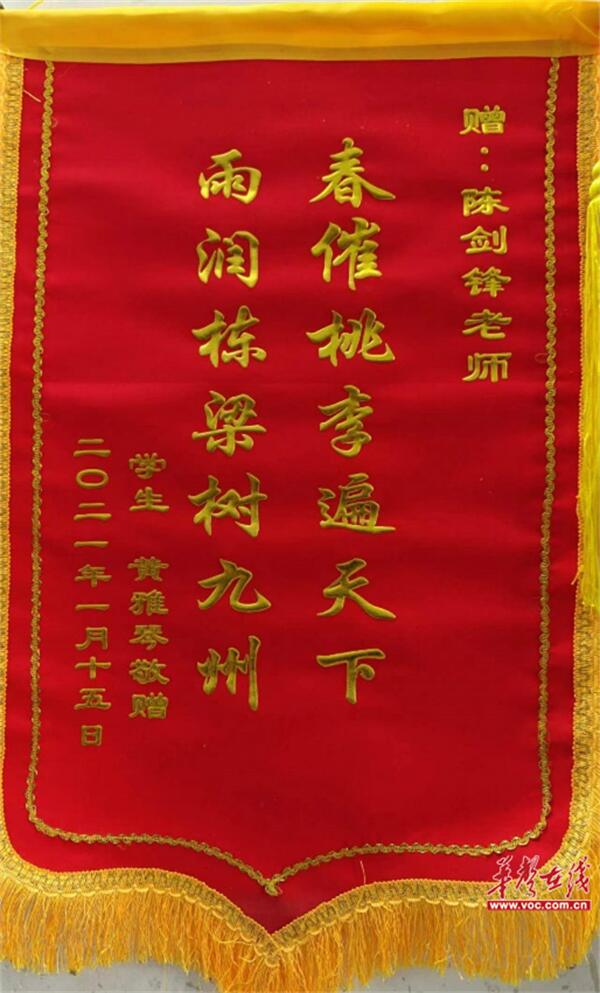 赠：陈剑锋老师
春催桃李遍天下
雨润栋梁树九州
学生 黄雅琴敬赠
二〇二一年一月十五日
华声在线
www.voc.com.cn